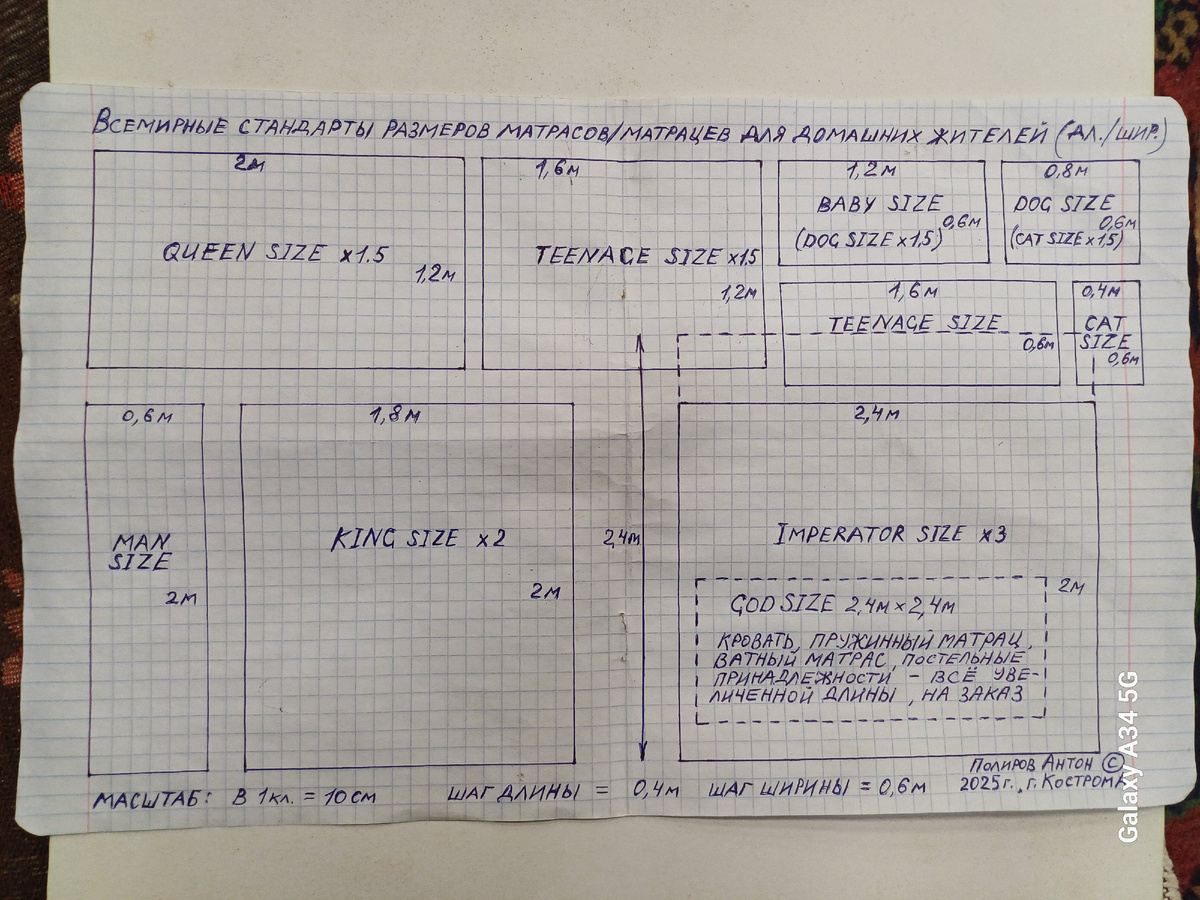 ВСЕМИРНЫЕ СТАНДАРТЫ РАЗМЕРОВ МАТРАСОВ/МАТРАЦЕВ ДЛЯ ДОМАШНИХ ЖИТЕЛЕЙ (ДЛ./ШИР.)
2м
QUEEN SIZE x1.5
1,2м
1,6м
TEENAGE SIZE x1.5
1,2м
1,2м
BABY SIZE
0,6м
(DOG SIZE x1,5)
0,8м
DOG SIZE
0,6м
(CAT SIZE x1,5)
1,6м
TEENAGE SIZE
0,6м
0,4м
CAT
SIZE
0,6м
0,6м
MAN
SIZE
2м
1,8м
KING SIZE x2
2м
2,4м
2,4м
IMPERATOR SIZE x3
2м
GOD SIZE 2,4м x 2,4м
КРОВАТЬ, ПРУЖИННЫЙ МАТРАЦ,
ВАТНЫЙ МАТРАС, ПОСТЕЛЬНЫЕ
ПРИНАДЛЕЖНОСТИ – ВСЁ УВЕ-
ЛИЧЕННОЙ ДЛИНЫ, НА ЗАКАЗ
МАСШТАБ: В 1кл. = 10см ШАГ ДЛИНЫ = 0,4м ШАГ ШИРИНЫ = 0,6м
ПОЛИРОВ АНТОН ©
2025г., г. КОСТРОМА
Galaxy A34 5G